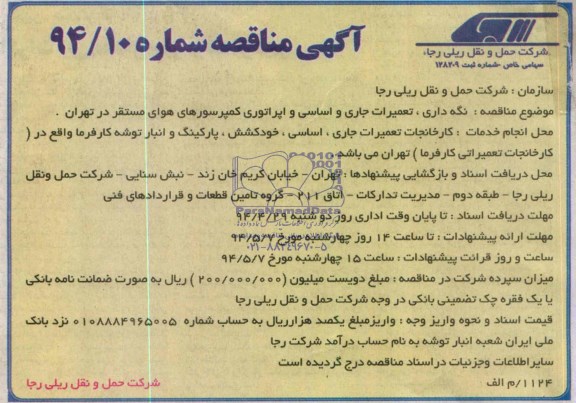 آگهی مناقصه شماره ۹۴/۱۰
شرکت حمل و نقل ریلی رجاء
سهامی خاص -شماره ثبت ۱۲۸۲۰۹
سازمان : شرکت حمل و نقل ریلی رجا
موضوع مناقصه : نگه داری ، تعمیرات جاری و اساسی و اپراتوری کمپرسورهای هوای مستقر در تهران .
محل انجام خدمات : کارخانجات تعمیرات جاری ، اساسی ، خودکشش ، پارکینگ و انبار توشه کارفرما واقع در (
کارخانجات تعمیراتی کارفرما ) تهران می باشد
محل دریافت اسناد و بازگشایی پیشنهادها : تهران - خیابان کریم خان زند - نبش سنایی - شرکت حمل ونقل
ریلی رجا - طبقه دوم - مدیریت تدارکات - اتاق ۲۱۱ - گروه تامین قطعات و قراردادهای فنی
ParsNamadData
مهلت دریافت اسناد : تا پایان وقت اداری روز دو شنبه ۹۴/۴/۲۹
مهلت ارائه پیشنهادات : تا ساعت ۱۴ روز چهارشنبه مورخ ۹۴/۵/۷
۰۲۱-۸۸۳۴۹۶۷۰-۵
ساعت و روز قرائت پیشنهادات : ساعت ۱۵ چهارشنبه مورخ ۹۴/۵/۷
میزان سپرده شرکت در مناقصه : مبلغ دویست میلیون (۲۰۰/۰۰۰/۰۰۰) ریال به صورت ضمانت نامه بانکی
یا یک فقره چک تضمینی بانکی در وجه شرکت حمل و نقل ریلی رجا
قیمت اسناد و نحوه واریز وجه : واریزمبلغ یکصد هزارریال به حساب شماره ۰۱۰۸۸۸۴۹۶۵۰۰۵ نزد بانک
ملی ایران شعبه انبار توشه به نام حساب درآمد شرکت رجا
سایراطلاعات وجزئیات دراسناد مناقصه درج گردیده است
۱۱۲۴/م الف
شرکت حمل و نقل ریلی رجا